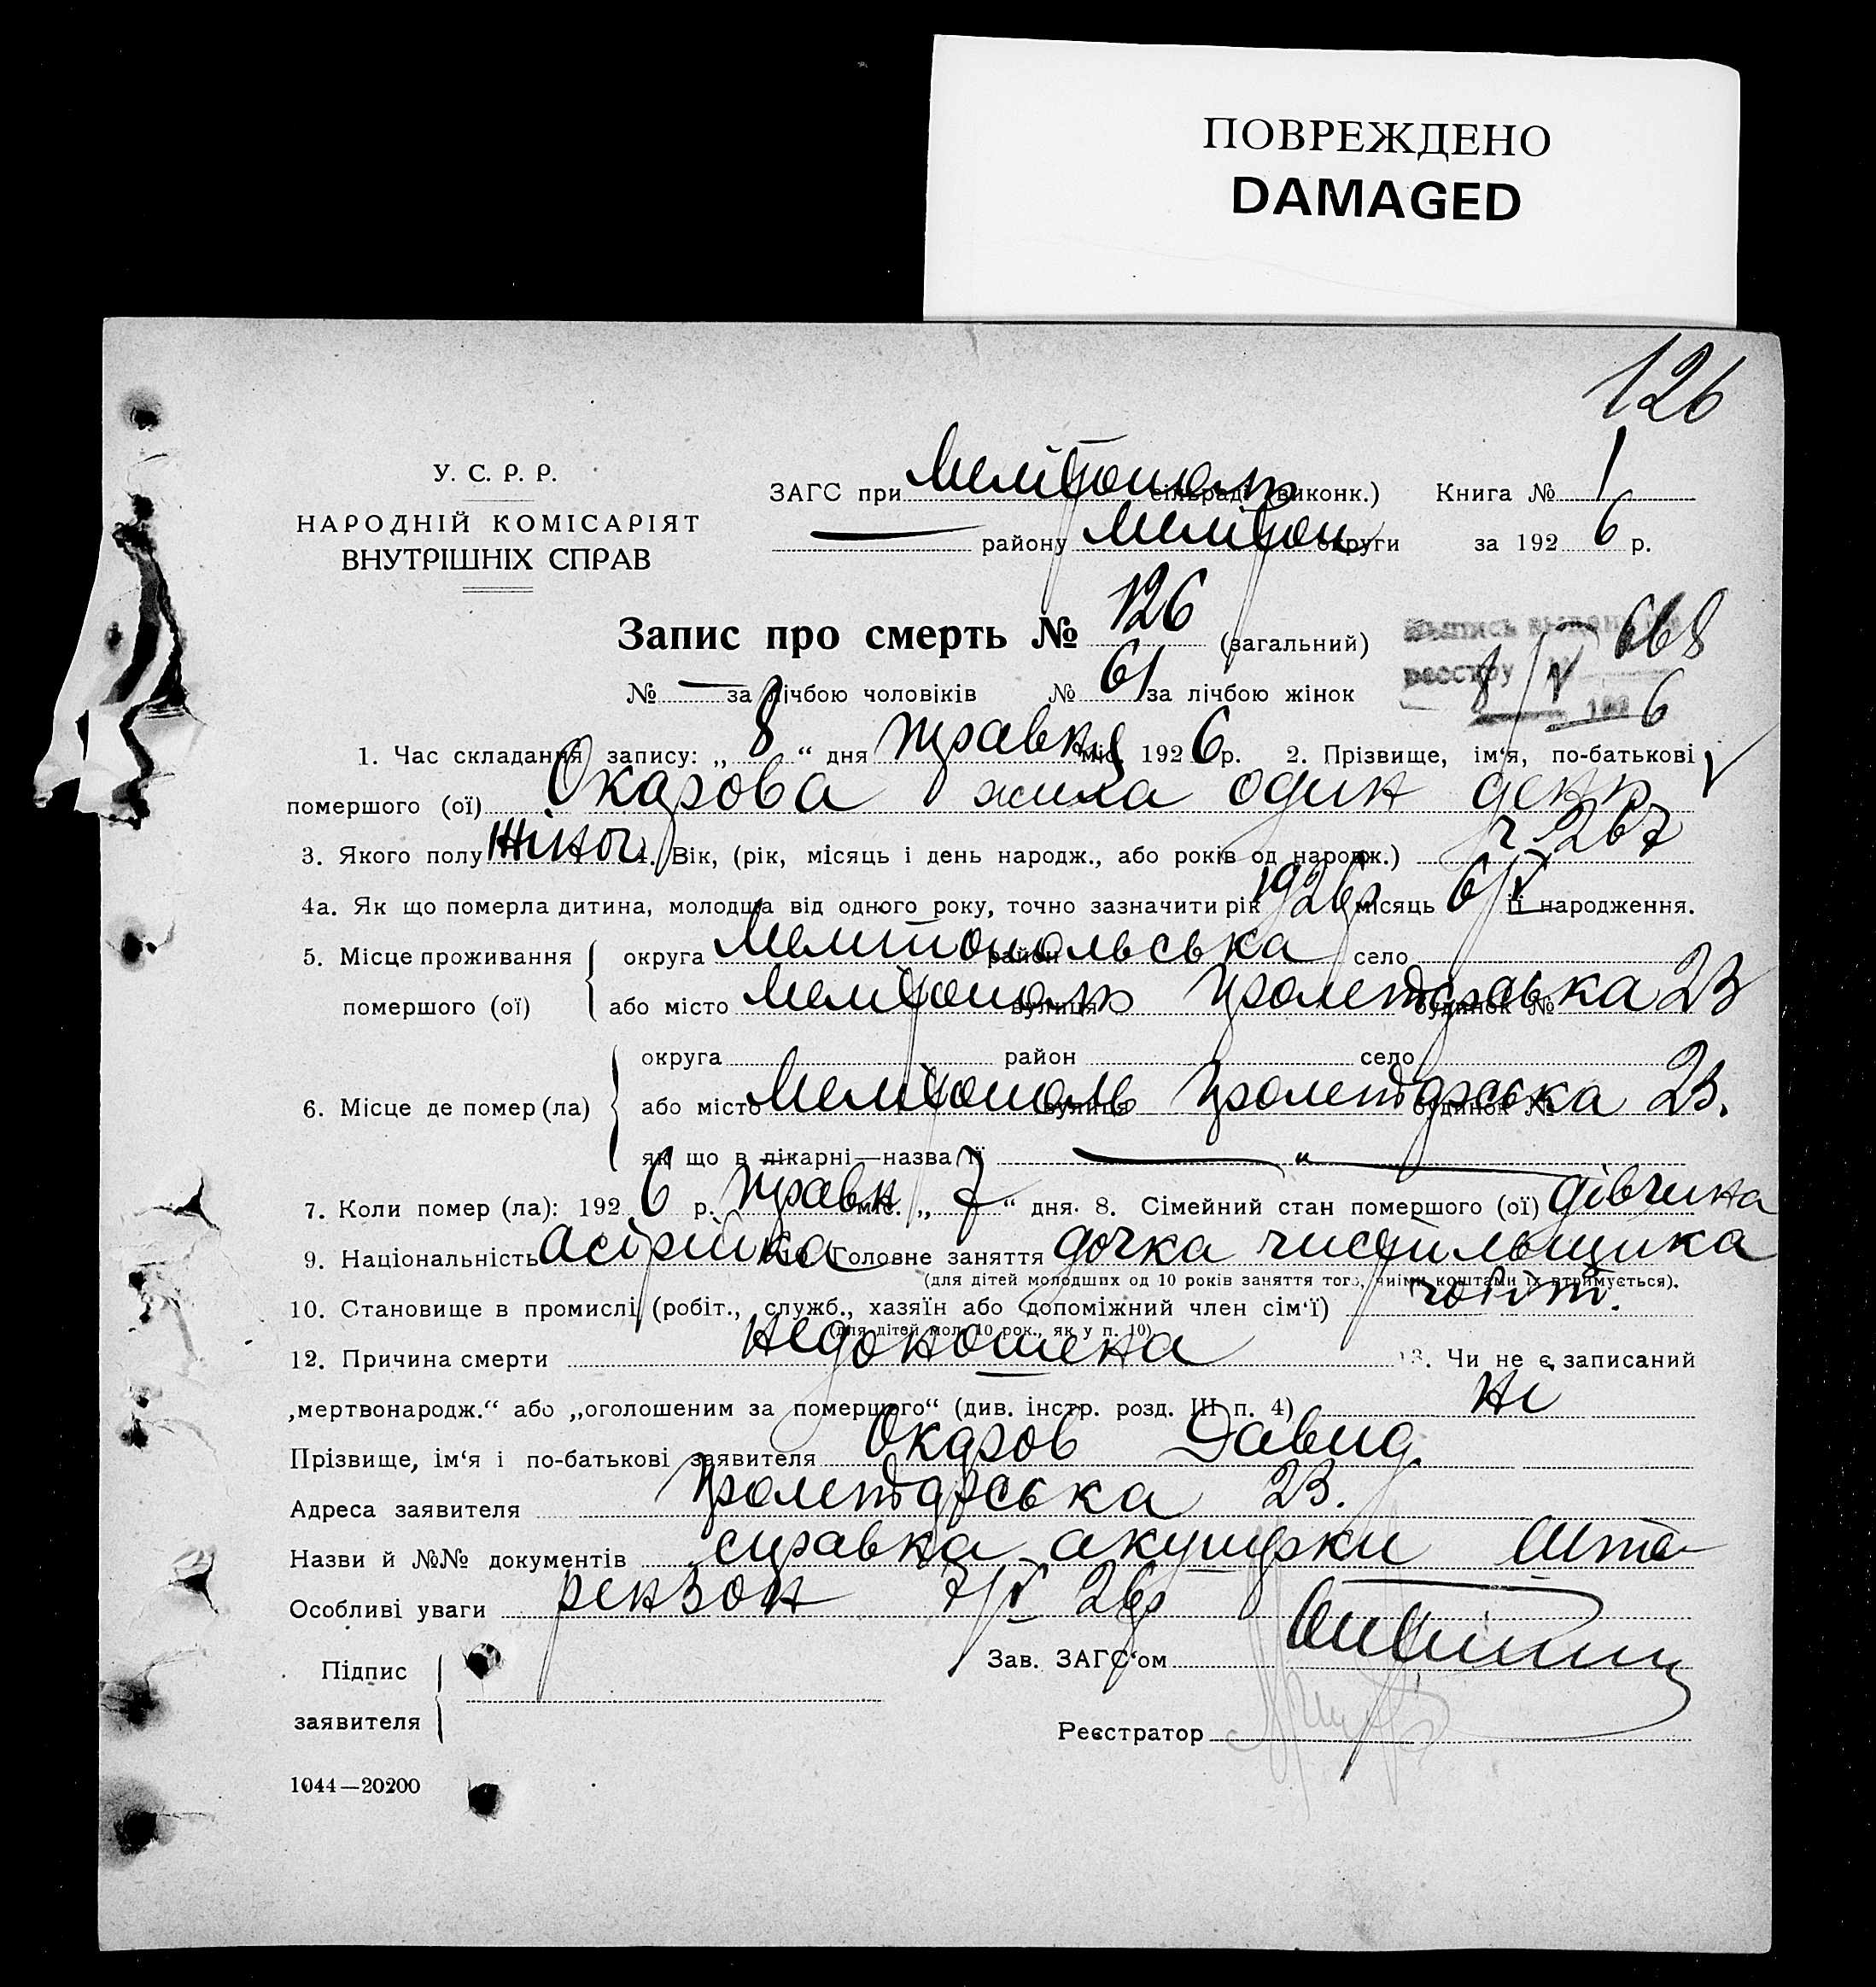 ПОВРЕЖДЕНО
DAMAGED
126
У. С. Р. Р.
НАРОДНІЙ КОМІСАРІЯТ
ВНУТРІШНІХ СПРАВ
ЗАГС при Мелітополь сільраді (виконк.) Книга № 1
— району Мелітоп округи за 1926 р.
Запис про смерть № 126 (загальний)
№ — за лічбою чоловіків № 61 за лічбою жінок
668
реестру 8/V 1926
1. Час складання запису: „8“ дня травня міс. 1926 р. 2. Прізвище, ім‘я, по-батькові
помершого (ої) Окарова жила один день
3. Якого полу жіноч 4. Вік, (рік, місяць і день народж., або років од народж.)
4а. Як що померла дитина, молодша від одного року, точно зазначити рік 1926 р місяць 6/V її народження.
5. Місце проживання округа Мелітопольська район село
помершого (ої) або місто Мелітополь вулиця Пролетарська будинок № 23
округа район село
6. Місце де помер (ла) або місто Мелітополь вулиця Пролетарська будинок № 23.
як що в лікарні—назва її — „ —
7. Коли помер (ла): 1926 р. травн міс. „7“ дня. 8. Сімейний стан помершого (ої) дівчина
9. Національність асірійка 10. Головне заняття дочка чистильщика
(для дітей молодших од 10 років заняття того, чиїми коштами їх втримується).
чобіт.
10. Становище в промислі (робіт., служб., хазяїн або допоміжний член сім‘ї)
(для дітей мол. 10 рок., як у п. 10)
12. Причина смерти недоношена 13. Чи не є записаний
„мертвонародж.“ або „оголошеним за помершого“ (див. інстр. розд. III п. 4) ні
Прізвище, ім‘я і по-батькові заявителя Окаров Давид
Адреса заявителя Пролетарська 23.
Назви й №№ документів справка акушерки Ште-
Особливі уваги рензон 7/V 26 р
Підпис
заявителя
Зав. ЗАГС‘ом
Реєстратор
1044—20200